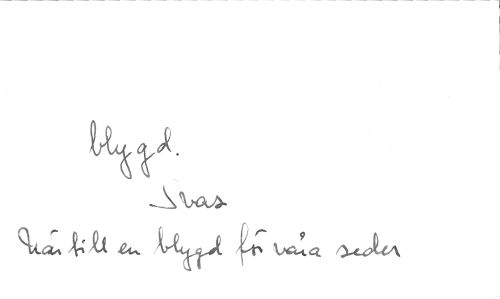 blygd.
Ivas
När till en blygd för våra seder